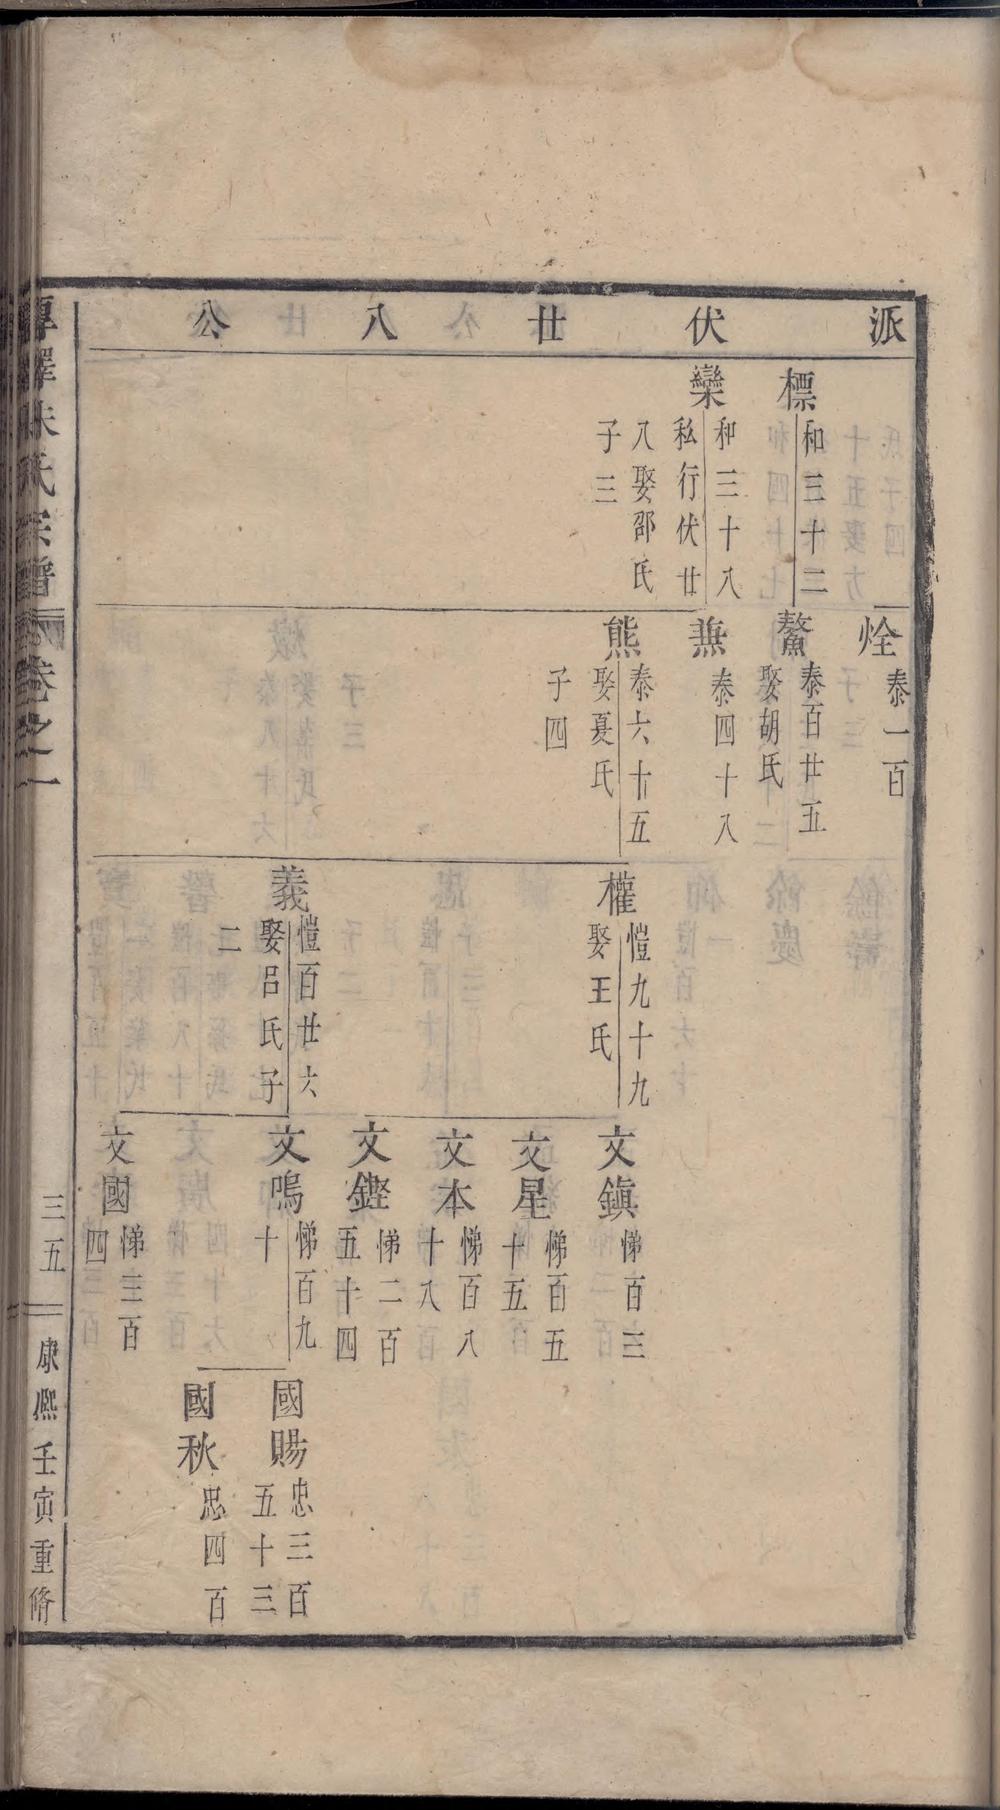 派伏廿八公
標
和三十二
欒
和三十八
私行伏廿
八娶邵氏
子三
烇
泰一百
鰲
泰百廿五
娶胡氏
𤋱
泰四十八
熊
泰六十五
娶夏氏
子四
權
愷九十九
娶王氏
義
愷百廿六
娶呂氏子
二
文鎮
悌百三
文星
悌百五
十五
文本
悌百八
十八
文鏗
悌二百
五十四
文鳴
悌百九
十
文國
悌三百
四
國賜
忠三百
五十三
國秋
忠四百
朱氏宗譜
卷之一
三五
康熙壬寅重脩